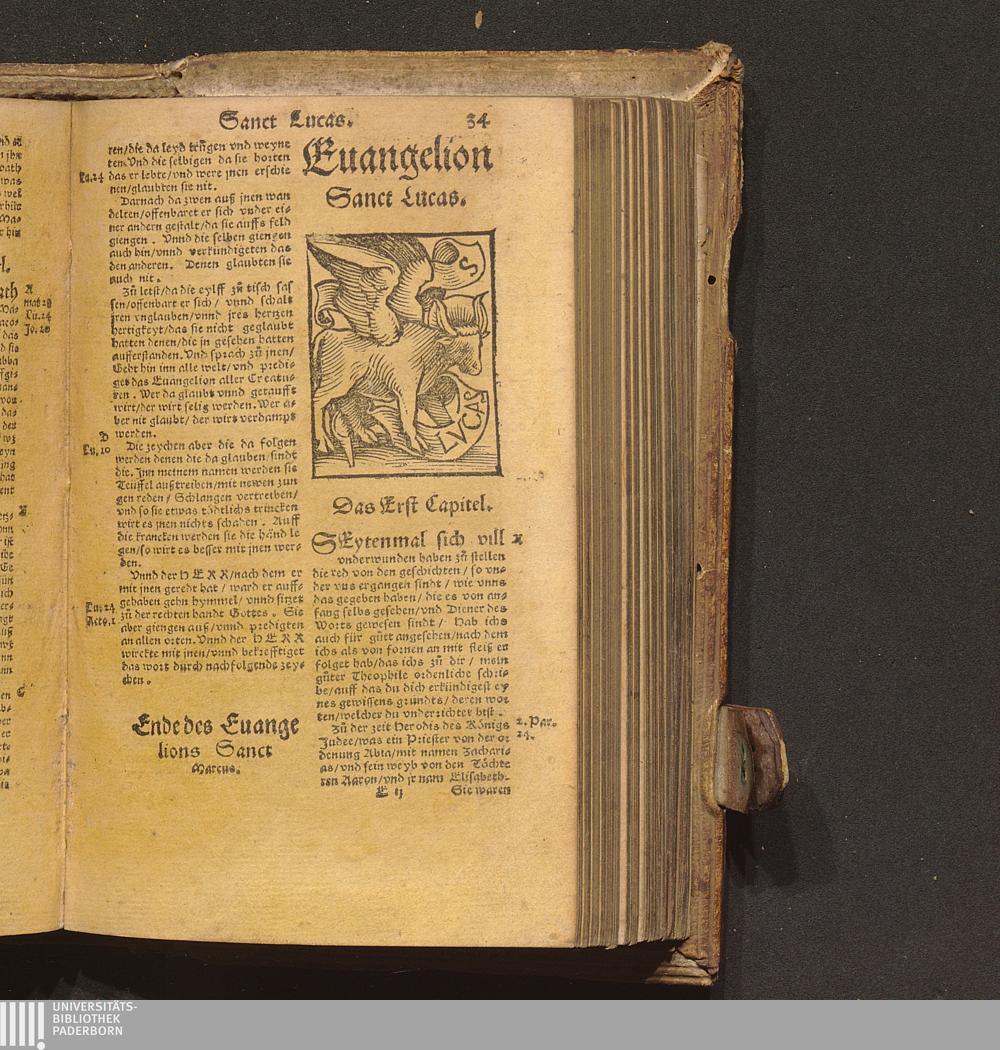 Sanct Lucas. 34
ren/die da leyd trůgen vnd weyne
ten. Vnd die selbigen da sie horten
Lu.24 das er lebte/vnd were jnen erschie
nen/glaubten sie nit.
Darnach da zwen auß jnen wan
delten/offenbaret er sich vnder ei-
ner andern gestalt/da sie auffs feld
giengen. Vnnd die selben giengen
auch hin/vnnd verkündigeten das
den anderen. Denen glaubten sie
auch nit.
Zů letst/da die eylff zů tisch sas
sen/offenbart er sich/ vnnd schalt
jren vnglauben/vnnd jres hertzen
hertigkeyt/das sie nicht geglaubt
hatten denen/die jn gesehen hatten
aufferstanden. Vnd sprach zů jnen/
Geht hin inn alle welt/vnd predi-
get das Euangelion aller Creatu-
ren. Wer da glaubt vnnd getaufft
wirt/der wirt selig werden. Wer a-
ber nit glaubt/ der wirt verdampt
D werden.
Lu.10 Die zeychen aber die da folgen
werden denen die da glauben/sindt
die. Inn meinem namen werden sie
Teüffel außtreiben/mit newen zun
gen reden/ Schlangen vertreiben/
vnd so sie etwas tödtlichs trincken
wirt es jnen nichts schaden. Auff
die krancken werden sie die händ le
gen/so wirt es besser mit jnen wer-
den.
Vnnd der HERR/nach dem er
mit jnen geredt hat/ ward er auff-
Lu.24 gehaben gehn hymmel/ vnnd sitzet
Acto.1 zů der rechten handt Gottes. Sie
aber giengen auß/vnnd predigten
an allen orten. Vnnd der HERR
wirckte mit jnen/vnnd bekrefftiget
das wort durch nachfolgende zey-
chen.
Ende des Euange
lions Sanct
Marcus.
Euangelion
Sanct Lucas.
S
LVCAS
Das Erst Capitel.
SEytenmal sich vill
vnderwunden haben zů stellen
die red von den geschichten/ so vn-
der vns ergangen sindt/ wie vnns
das gegeben haben/die es von an-
fang selbs gesehen/vnd Diener des
Worts gewesen sindt/ Hab ichs
auch für gůt angesehen/nach dem
ichs als von fornen an mit fleiß er
folget hab/das ichs zů dir/ mein
gůter Theophile ordenliche schri-
be/auff das du dich erkündigest ey
nes gewissens grundts/deren wor
ten/welcher du vnderrichtet bist.
Zů der zeit Herodis des Königs 1. Par.
Judee/was ein Priester von der or 24.
denung Abia/mit namen Zachari-
as/vnd sein weyb von den Töchte
ren Aaron/vnd jr nam Elisabeth.
E ij Sie waren
A
mat 28
Lu.24
Jo.20
C
UNIVERSITÄTS-
BIBLIOTHEK
PADERBORN